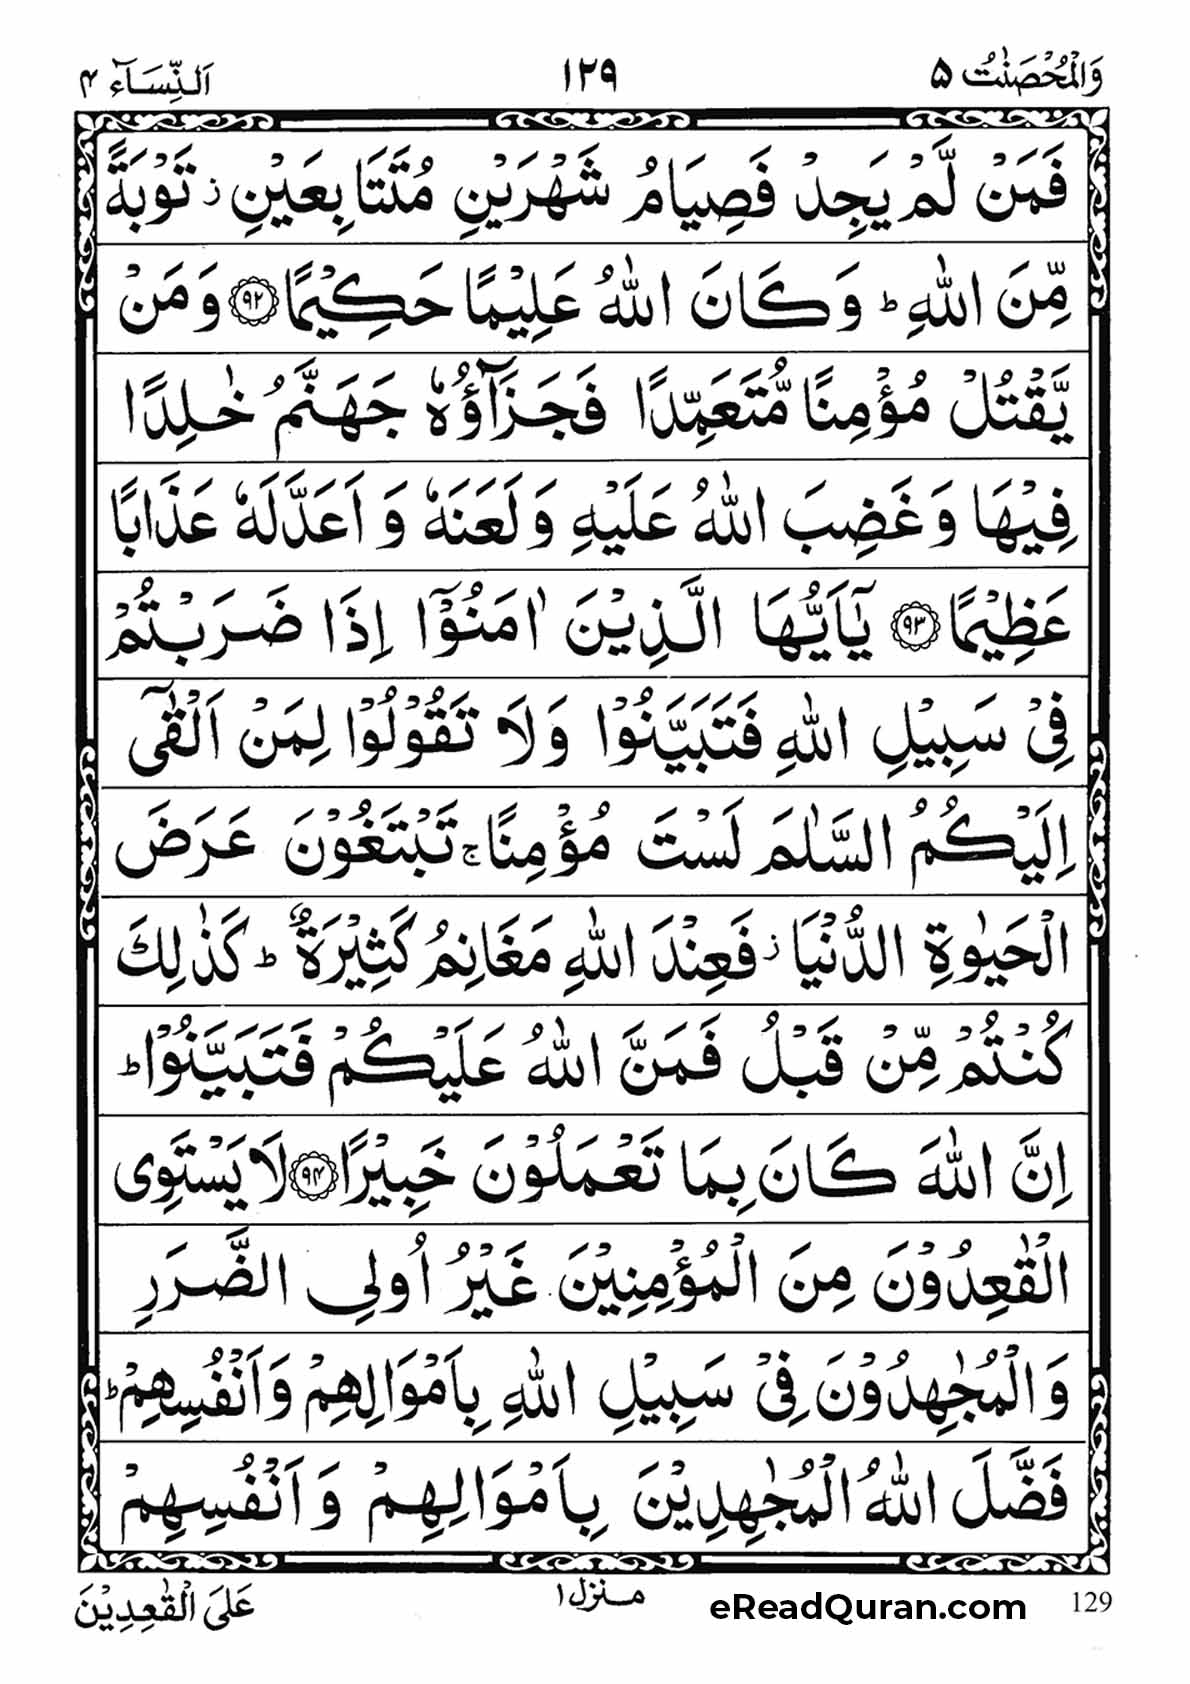 وَالْمُحْصَنٰتُ ۵ ۱۲۹ اَلنِّسَآء ۴
فَمَنْ لَّمْ يَجِدْ فَصِيَامُ شَهْرَيْنِ مُتَتَابِعَيْنِ ز تَوْبَةً
مِّنَ اللّٰهِ ط وَكَانَ اللّٰهُ عَلِيْمًا حَكِيْمًا ۹۲ وَمَنْ
يَّقْتُلْ مُؤْمِنًا مُّتَعَمِّدًا فَجَزَآؤُهٗ جَهَنَّمُ خٰلِدًا
فِيْهَا وَغَضِبَ اللّٰهُ عَلَيْهِ وَلَعَنَهٗ وَاَعَدَّلَهٗ عَذَابًا
عَظِيْمًا ۹۳ يٰٓاَيُّهَا الَّذِيْنَ اٰمَنُوْٓا اِذَا ضَرَبْتُمْ
فِيْ سَبِيْلِ اللّٰهِ فَتَبَيَّنُوْا وَلَا تَقُوْلُوْا لِمَنْ اَلْقٰٓى
اِلَيْكُمُ السَّلٰمَ لَسْتَ مُؤْمِنًا ج تَبْتَغُوْنَ عَرَضَ
الْحَيٰوةِ الدُّنْيَا ز فَعِنْدَ اللّٰهِ مَغَانِمُ كَثِيْرَةٌ ط كَذٰلِكَ
كُنْتُمْ مِّنْ قَبْلُ فَمَنَّ اللّٰهُ عَلَيْكُمْ فَتَبَيَّنُوْا ط
اِنَّ اللّٰهَ كَانَ بِمَا تَعْمَلُوْنَ خَبِيْرًا ۹۴ لَا يَسْتَوِى
الْقٰعِدُوْنَ مِنَ الْمُؤْمِنِيْنَ غَيْرُ اُولِى الضَّرَرِ
وَالْمُجٰهِدُوْنَ فِيْ سَبِيْلِ اللّٰهِ بِاَمْوَالِهِمْ وَاَنْفُسِهِمْ ط
فَضَّلَ اللّٰهُ الْمُجٰهِدِيْنَ بِاَمْوَالِهِمْ وَاَنْفُسِهِمْ
عَلَى الْقٰعِدِيْنَ منزل ۱ eReadQuran.com 129